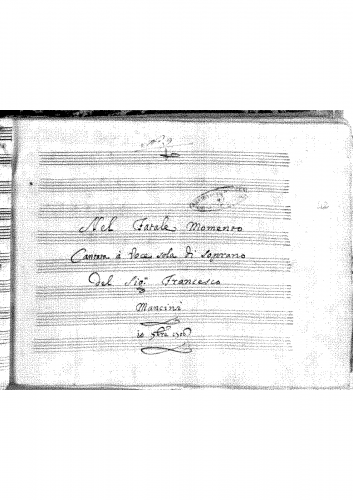 Nel Fatale Momento
Cantata à Voce sola di Soprano
Del Sigr. Francesco
Mancini
10